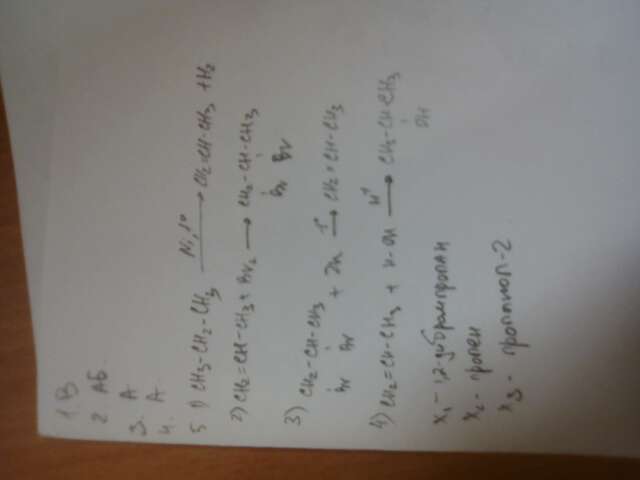 1. В
2. АБ.
3. А
4. А.
5 1) CH3-CH2-CH3 Ni, t° → CH2=CH-CH3 + H2
2) CH2=CH-CH3 + Br2 → CH2-CH-CH3
Br Br
3) CH2-CH-CH3 + Zn t° → CH2=CH-CH3
Br Br
4) CH2=CH-CH3 + H-OH H+ → CH3-CH-CH3
OH
X1 - 1,2-дибромпропан
X2 - пропен
X3 - пропанол-2